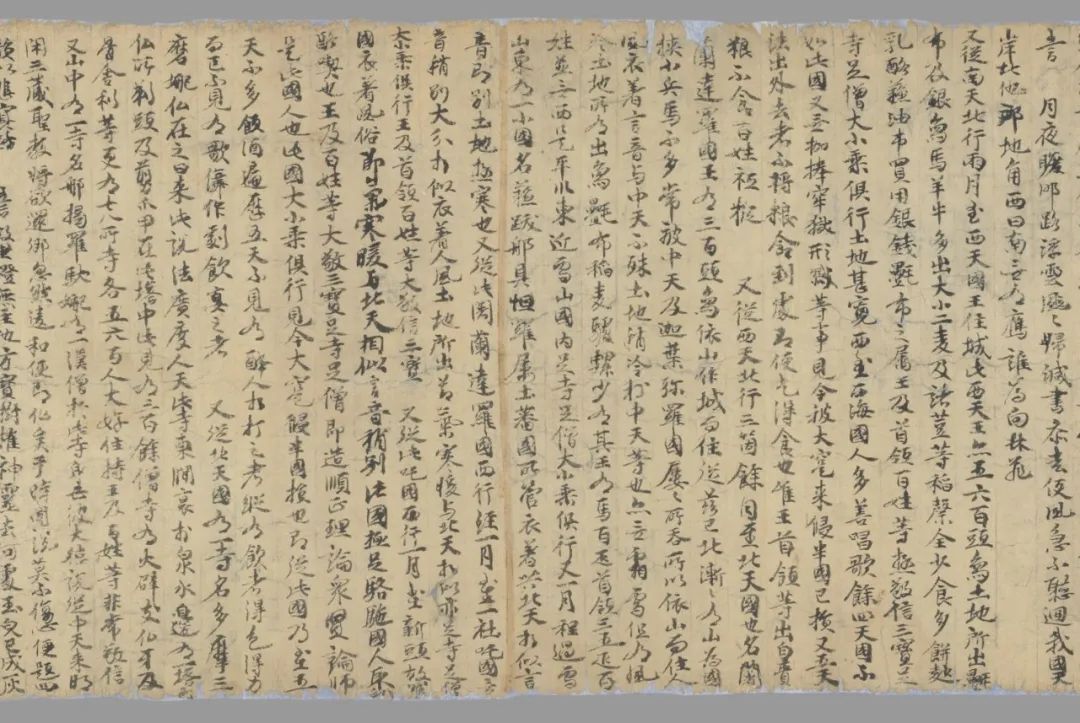 言　月夜瞻鄉路浮雲颯々歸緘書忝去便風急不聽迴我國天
岸北他邦地角西日南無有鴈誰為向林飛
又從南天北行兩月至西天國王住城此西天王亦五六百頭象土地所出氎
布及銀象馬羊牛多出大小二麦及諸荳等稻糓全少食多餅麨
乳酪蘇油市買用銀錢氎布之属王及首領百姓等極敬信三寶足
寺足僧大小乘俱行土地甚寬西至西海國人多善唱歌餘四天國不
如此國又無枷棒牢獄形戮等事見今被大寔來侵半國已損又五天
法出外去者不将粮食到處即便乞得食也唯王首領等出自賫
粮不食百姓祇擬　又從西天北行三箇餘月至北天國也名闍
蘭達羅國王有三百頭象依山作城而住從茲已北漸々有山為國
狹小兵馬不多常被中天及迦葉弥羅國屢々所吞所以依山而住人
風衣着言音与中天不殊土地稍冷於中天等也亦無霜雪但有風
冷土地所有出象氎布稻麦驢騾少有其王有馬百疋首領三五疋百
姓並無西是平川東近雪山國内足寺足僧大小乘俱行又一月程過雪
山東有一小國名蘇跋那具怛羅属土蕃國所管衣着共北天相似言
音即別土地極寒也又從此闍蘭達羅國西行經一月至一社吒國言
音稍別大分相似衣着人風土地所出節氣寒暖与北天相似亦足寺足僧
大小乘俱行王及首領百姓等大敬信三寶　又從此吒國西行一月至新頭故羅
國衣着風俗節氣寒暖与北天相似言音稍別此國極足駱駞國人取乳
酪喫也王及百姓等大敬三寶足寺足僧即造順正理論衆賢論師
是此國人也此國大小乘俱行見今大寔侵半國損也即從此國乃至五
天不多飲酒遍歷五天不見有醉人相打之者縱有飲者得色得力
而已不見有歌儛作劇飲宴之者　又從北天國有一寺名多摩三
磨娜仏在之日來此説法廣度人天此寺東澗裏於泉水邊有一塔而
仏所剃頭及剪爪甲在此塔中此見有三百餘僧寺有大辟支仏牙及
骨舍利等更有七八所寺各五六百人大好住持王及百姓等非常敬信
又山中有一寺名那揭羅馱娜有一漢僧於此寺身亡彼大德説從中天來明
閑三藏聖教将欲還鄉忽然違和便即化矣于時聞説莫不傷心便題四
韻以悲冥路　五言　故里燈無主他方寶樹摧神靈去何處玉皃已成灰